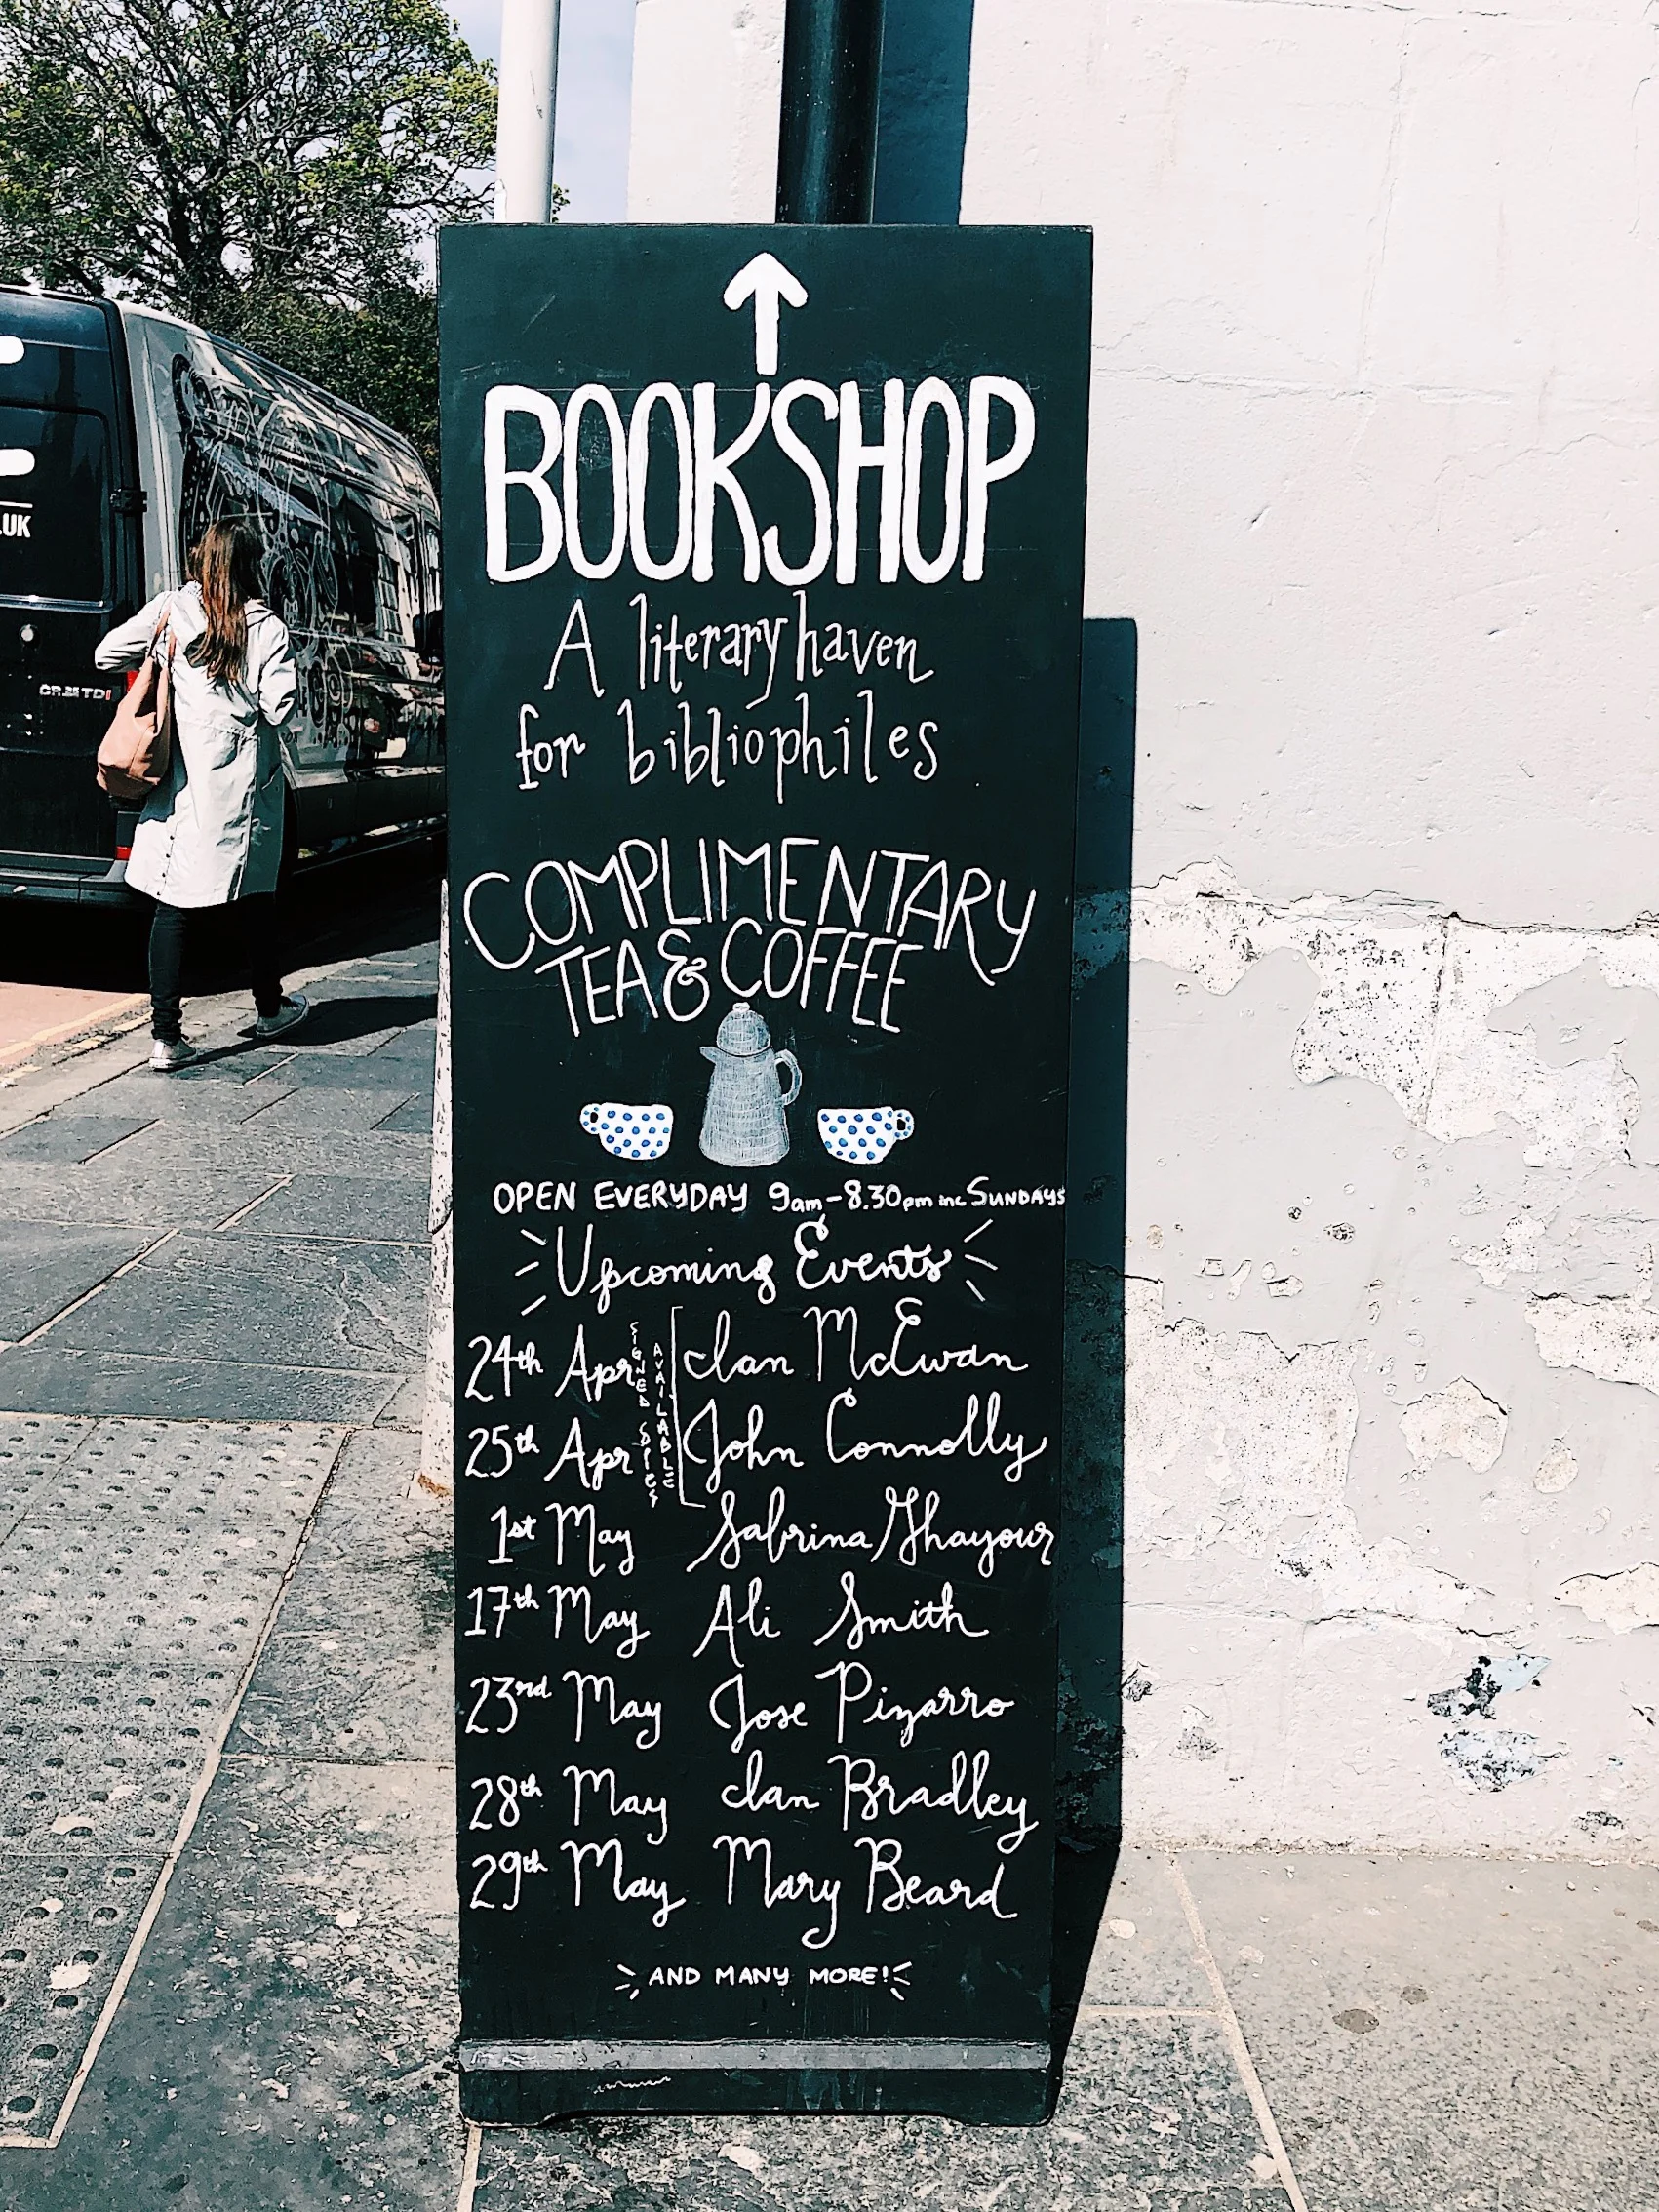 BOOKSHOP
A literary haven
for bibliophiles
COMPLIMENTARY
TEA & COFFEE
OPEN EVERYDAY 9am-8.30pm inc SUNDAYS
Upcoming Events
24th Apr Ian McEwan
25th Apr John Connolly
SIGNED COPIES
AVAILABLE
1st May Sabrina Ghayour
17th May Ali Smith
23rd May Jose Pizarro
28th May Ian Bradley
29th May Mary Beard
AND MANY MORE!
.UK
CR35 TDI